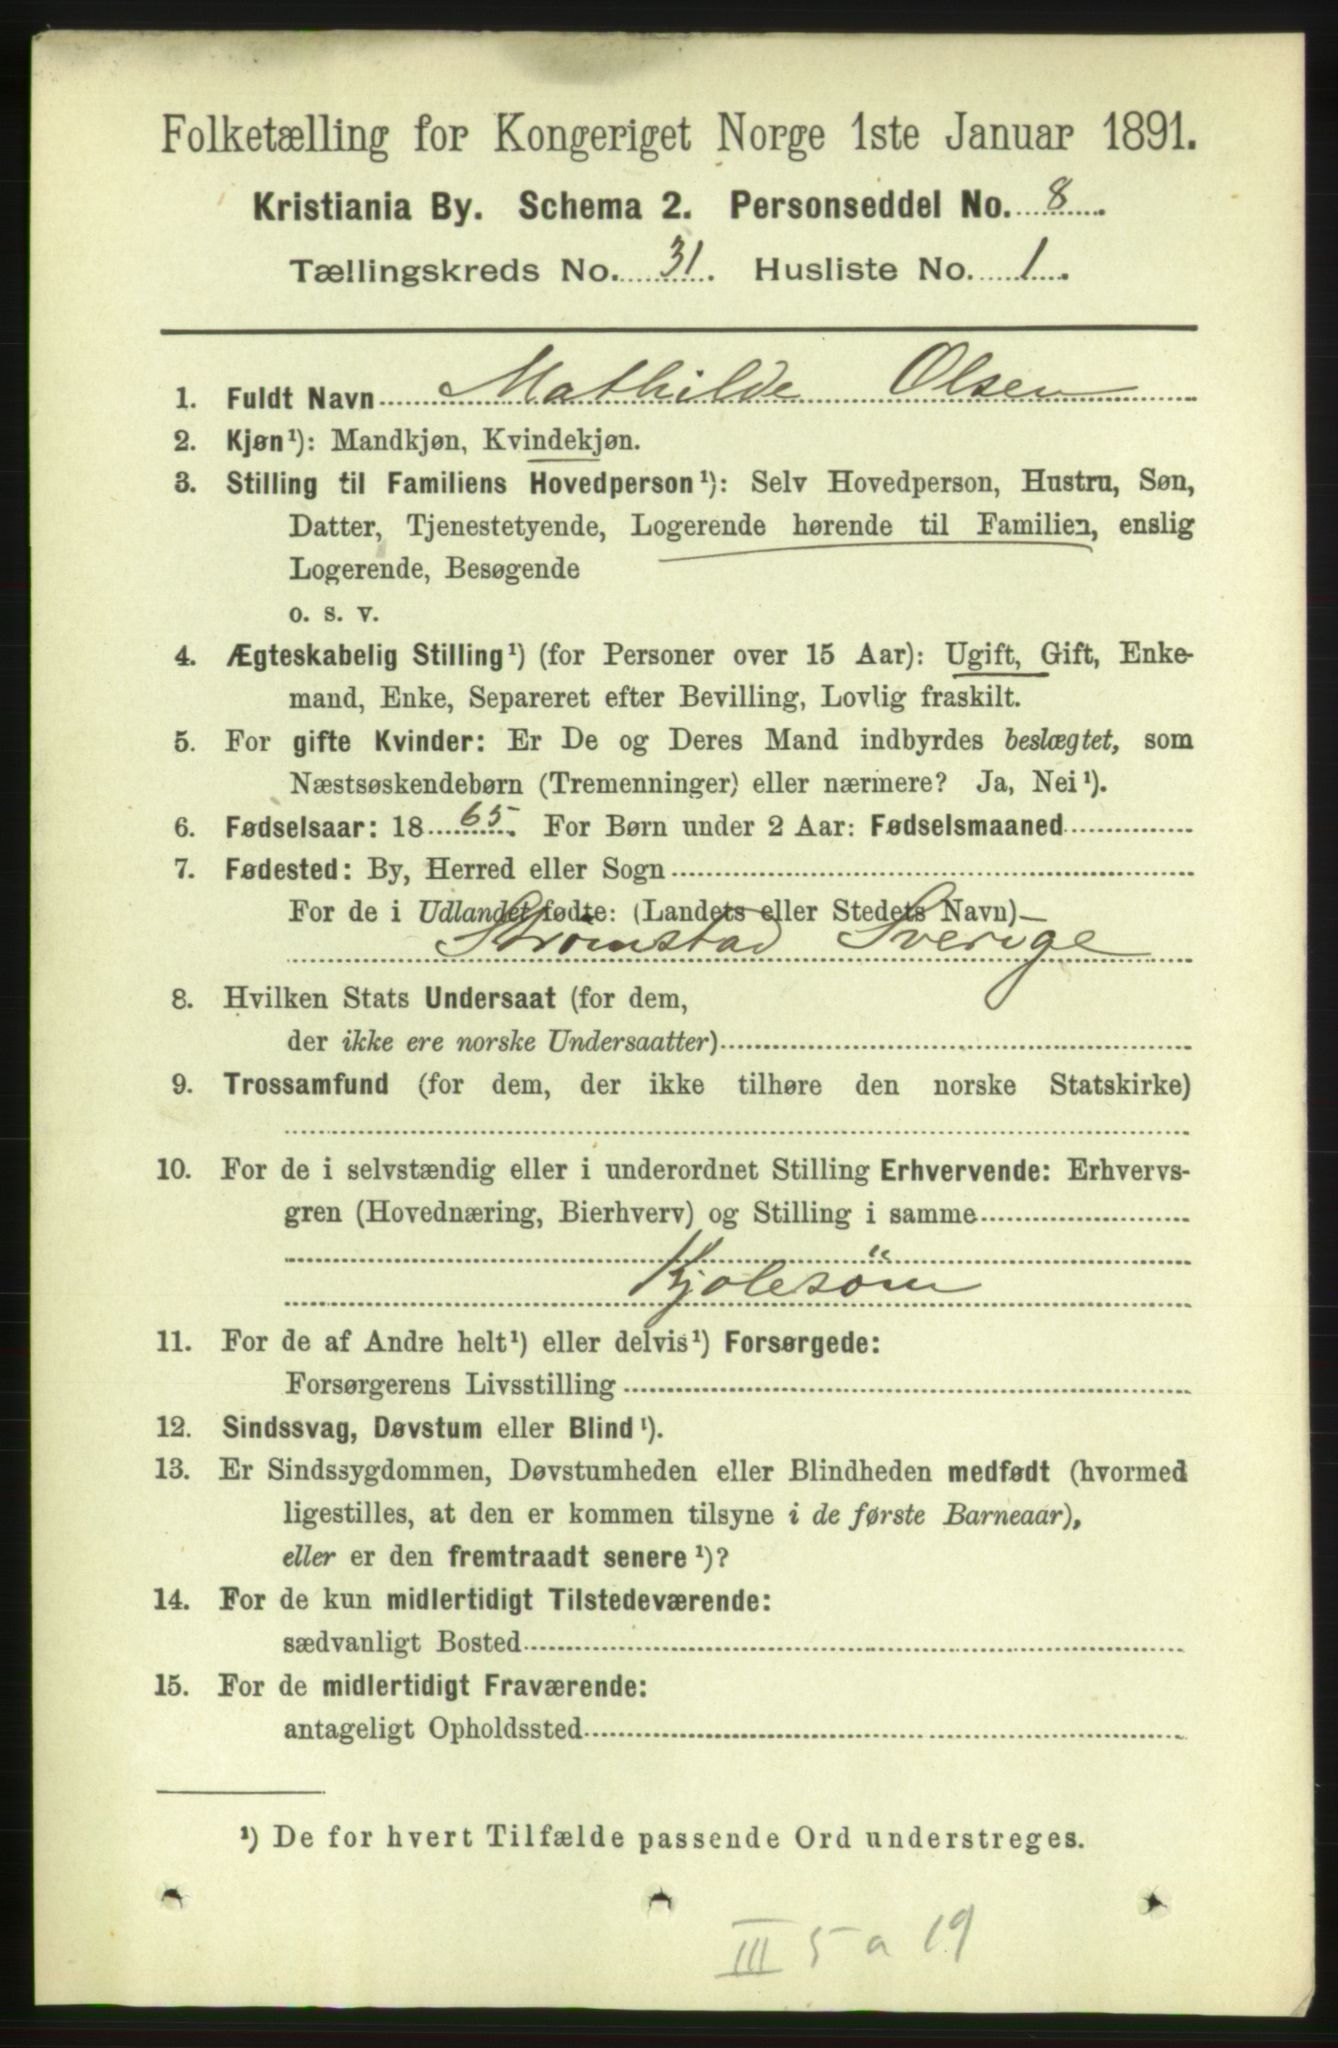 Folketælling for Kongeriget Norge 1ste Januar 1891.
Kristiania By. Schema 2. Personseddel No. 8.
Tællingskreds No. 31. Husliste No. 1.
1. Fuldt Navn Mathilde Olsen
2. Kjøn¹): Mandkjøn, Kvindekjøn.
3. Stilling til Familiens Hovedperson¹): Selv Hovedperson, Hustru, Søn,
Datter, Tjenestetyende, Logerende hørende til Familien, enslig
Logerende, Besøgende
o. s. v.
4. Ægteskabelig Stilling¹) (for Personer over 15 Aar): Ugift, Gift, Enke-
mand, Enke, Separeret efter Bevilling, Lovlig fraskilt.
5. For gifte Kvinder: Er De og Deres Mand indbyrdes beslægtet, som
Næstsøskendebørn (Tremenninger) eller nærmere? Ja, Nei¹).
6. Fødselsaar: 1865. For Børn under 2 Aar: Fødselsmaaned
7. Fødested: By, Herred eller Sogn
For de i Udlandet fødte: (Landets eller Stedets Navn)
Strømstad Sverige
8. Hvilken Stats Undersaat (for dem,
der ikke ere norske Undersaatter)
9. Trossamfund (for dem, der ikke tilhøre den norske Statskirke)
10. For de i selvstændig eller i underordnet Stilling Erhvervende: Erhvervs-
gren (Hovednæring, Bierhverv) og Stilling i samme
Kjolesöm
11. For de af Andre helt¹) eller delvis¹) Forsørgede:
Forsørgerens Livsstilling
12. Sindssvag, Døvstum eller Blind¹).
13. Er Sindssygdommen, Døvstumheden eller Blindheden medfødt (hvormed
ligestilles, at den er kommen tilsyne i de første Barneaar),
eller er den fremtraadt senere¹)?
14. For de kun midlertidigt Tilstedeværende:
sædvanligt Bosted
15. For de midlertidigt Fraværende:
antageligt Opholdssted
¹) De for hvert Tilfælde passende Ord understreges.
III 5 a 19